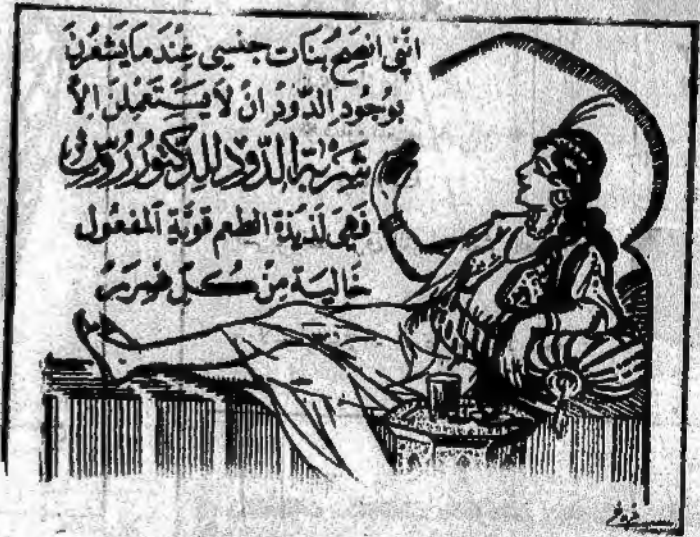 انني انصح بنات جنسي عندما يشعرن
بوجود الدود ان لا يستعملن الا
شربة الدود للدكتور روس
فهي لذيذة الطعم قوية المفعول
خالية من كل ضرر